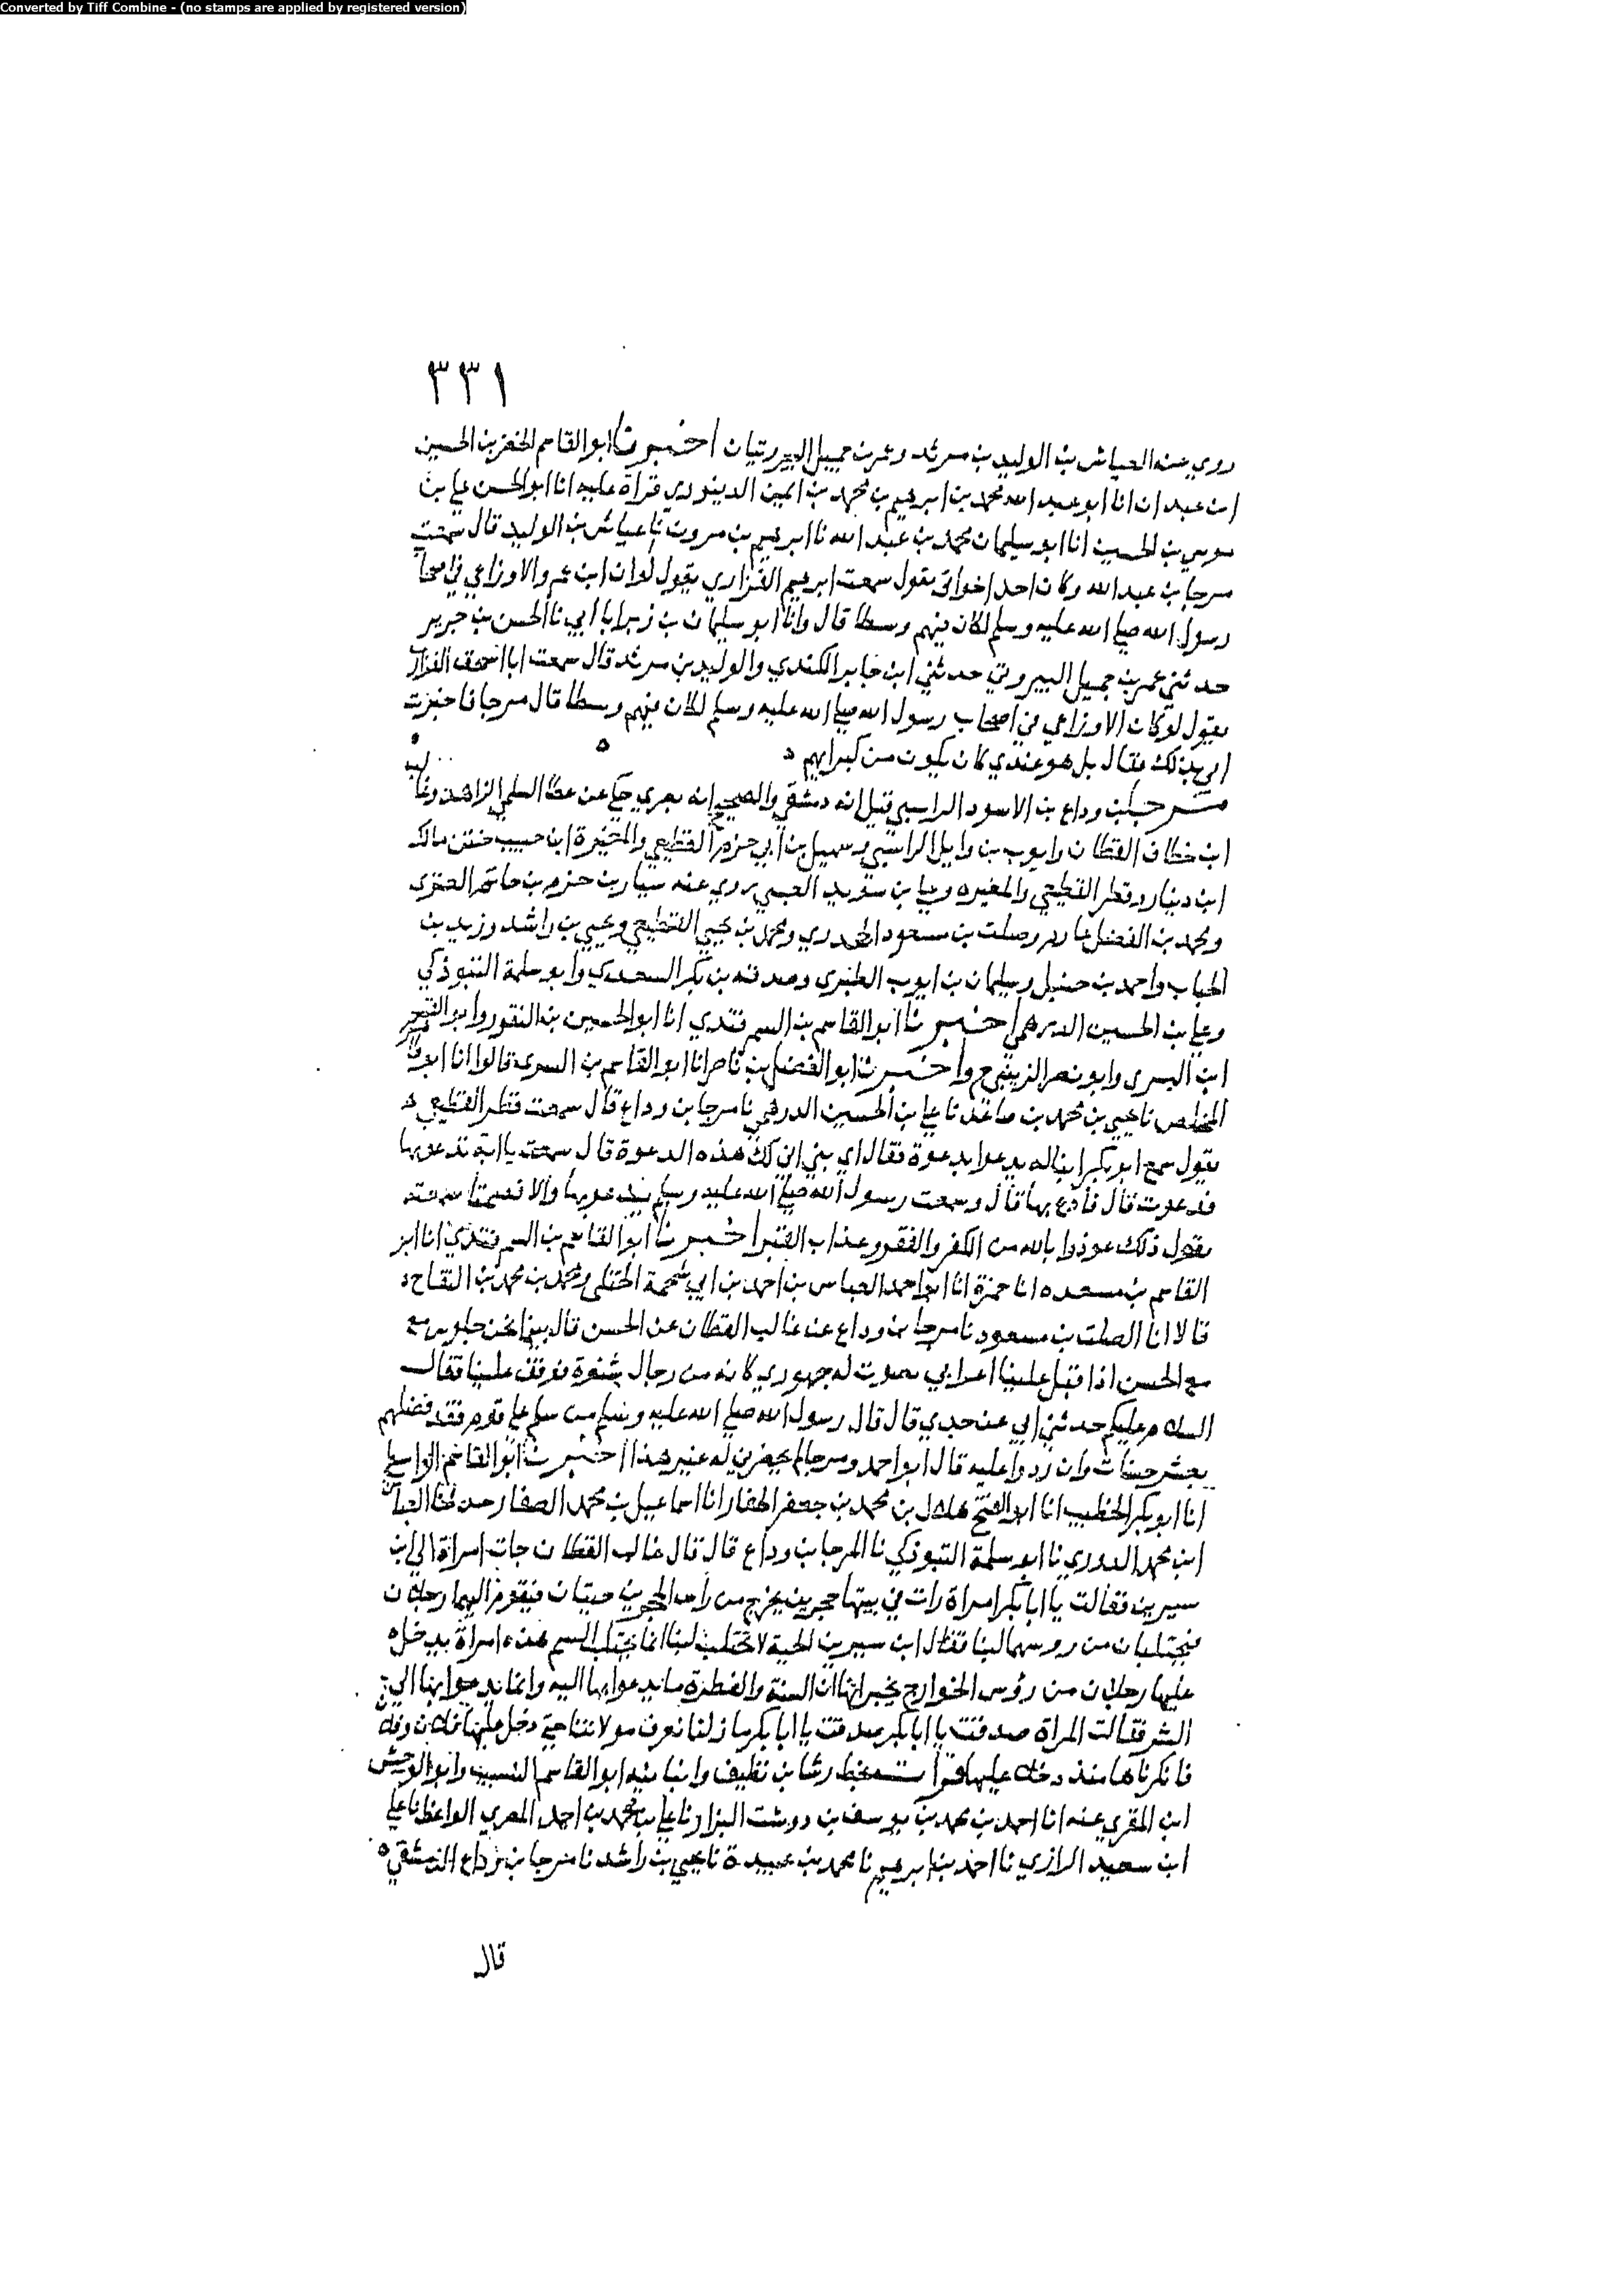 Converted by Tiff Combine - (no stamps are applied by registered version)
٣٣١
روي عنه العباس بن الوليد بن مرثد وعمر بن جميل البيروتيان اخبرنا ابو القاسم الخضر بن الحسين
ابن عبدان انا ابو عبد الله محمد بن ابرهيم بن محمد بن ايمن الدينوري قراة عليه انا ابو الحسن علي بن
موسى بن الحسين انا ابو سليمان محمد بن عبد الله نا ابرهيم بن مروان نا عباس بن الوليد قال سمعت
مرجا بن عبد الله وكان احد اخواني يقول سمعت ابرهيم الفزاري يقول لو ان ابن عمرو الاوزاعي في اصحاب
رسول الله صلى الله عليه وسلم لكان فيهم وسطا قال وانا ابو سليمان بن زبر انا ابي نا الحسن بن جرير
حدثني عمر بن جميل البيروتي حدثني ابن جابر الكندي والوليد بن مرثد قال سمعت ابا اسحق الفزاري
يقول لو كان الاوزاعي في اصحاب رسول الله صلى الله عليه وسلم لكان فيهم وسطا قال مرجا فاخبرت
ابي بذلك فقال بل هو عندي كان يكون من كبرايهم
مرجا بن وداع بن الاسود الراسبي قيل انه دمشقي والصحيح انه بصري حكى عن عطا السلمي الزاهد وغالب
ابن خطاف القطان وايوب بن وايل الراسبي وسهيل بن ابي حزم القطيعي والمغيرة ابن حبيب ختن مالك
ابن دينار وقطر القطيعي والمغيره وعلي بن سويد العبسي روي عنه سيار بن حاتم العنزي
ومحمد بن الفضل عارم وصلت بن مسعود الجحدري ومحمد بن يحيي القطيعي ويحيي بن راشد وزيد بن
الحباب واحمد بن حنبل وسليمان بن ايوب وصدقه بن بكر السعدي وابو سلمة التبوذكي
وعلي بن الحسين الدرهمي اخبرنا ابو القاسم بن السمرقندي انا ابو الحسين بن النقور وابو القاسم
ابن البسرى وابو نصر الزينبي ح واخبرنا ابو الفضل بن ناصر انا ابو القاسم بن البسرى قالوا انا ابو طاهر
المخلص نا يحيي بن محمد بن صاعد نا علي بن الحسين الدرهمي نا مرجا بن وداع قال سمعت قطر القطيعي
يقول سمع ابو بكر ابنا له يدعوا بدعوة فقال اي بني انى لك هذه الدعوة قال سمعت يا ابة تدعو بها
فدعوت قال فادع بها قال وسمعت رسول الله صلى الله عليه وسلم يدعو بها والا فصمتا سمعته
يقول ذلك عوذوا بالله من الكفر والفقر وعذاب القبر اخبرنا ابو القاسم بن السمرقندي انا ابو
القاسم بن مسعده انا حمزة انا ابو احمد العباس بن احمد بن ابي شحمة الختلى ومحمد بن محمد بن النفاح
قالا انا الصلت بن مسعود نا مرجا بن وداع عن غالب القطان عن الحسن قال بينا نحن جلوس مع
مع الحسن اذ اقبل علينا اعرابي بصوت له جهوري كانه من رجال شنوة فوقف علينا فقال
السلام عليكم حدثني ابي عن جدي قال قال رسول الله صلى الله عليه وسلم من سلم على قوم فقد فضلهم
بعشر حسنات وان ردوا عليه قال ابو احمد ومرجا لم يحضرني له غير هذا اخبرنا ابو القاسم الواسطي
انا ابو بكر الخطيب انا ابو الفتح هلال بن محمد بن جعفر الحفار انا اسماعيل بن محمد الصفار حدثنا العباس
ابن محمد الدوري نا ابو سلمة التبوذكي نا المرجا بن وداع قال قال غالب القطان جات امراة الى ابن
سيرين فقالت يا ابا بكر امراة رات في بيتها حجرين يخرج من راس الحجرين حيتان فيقوم اليهما رجلان
فيحتلبان من روسهما لبنا فقال ابن سيرين الحية لا تحتلب لبنا انما يحتلب السم هذه امراة يدخل
عليها رجلان من رؤس الخوارج يخبرانها ان السنة والفطرة ما يدعوانها اليه وانما يدعوانها الي
الشر فقالت المراة صدقت يا ابا بكر صدقت يا ابا بكر ما زلنا نعرف مولاتنا حتى دخل عليها فلان وفلان
فانكرناها منذ دخلا عليها قرات بخط رشا بن نظيف وانبانيه ابو القاسم النسيب وابو الوحش
ابن المقري عنه انا احمد بن محمد بن يوسف بن دوست البزاز نا علي بن محمد بن احمد المصري الواعظ نا علي
ابن سعيد الرازي نا احمد بن ابرهيم نا محمد بن عبيدة نا يحيي بن راشد نا مرجا بن وداع الدمشقي
قال